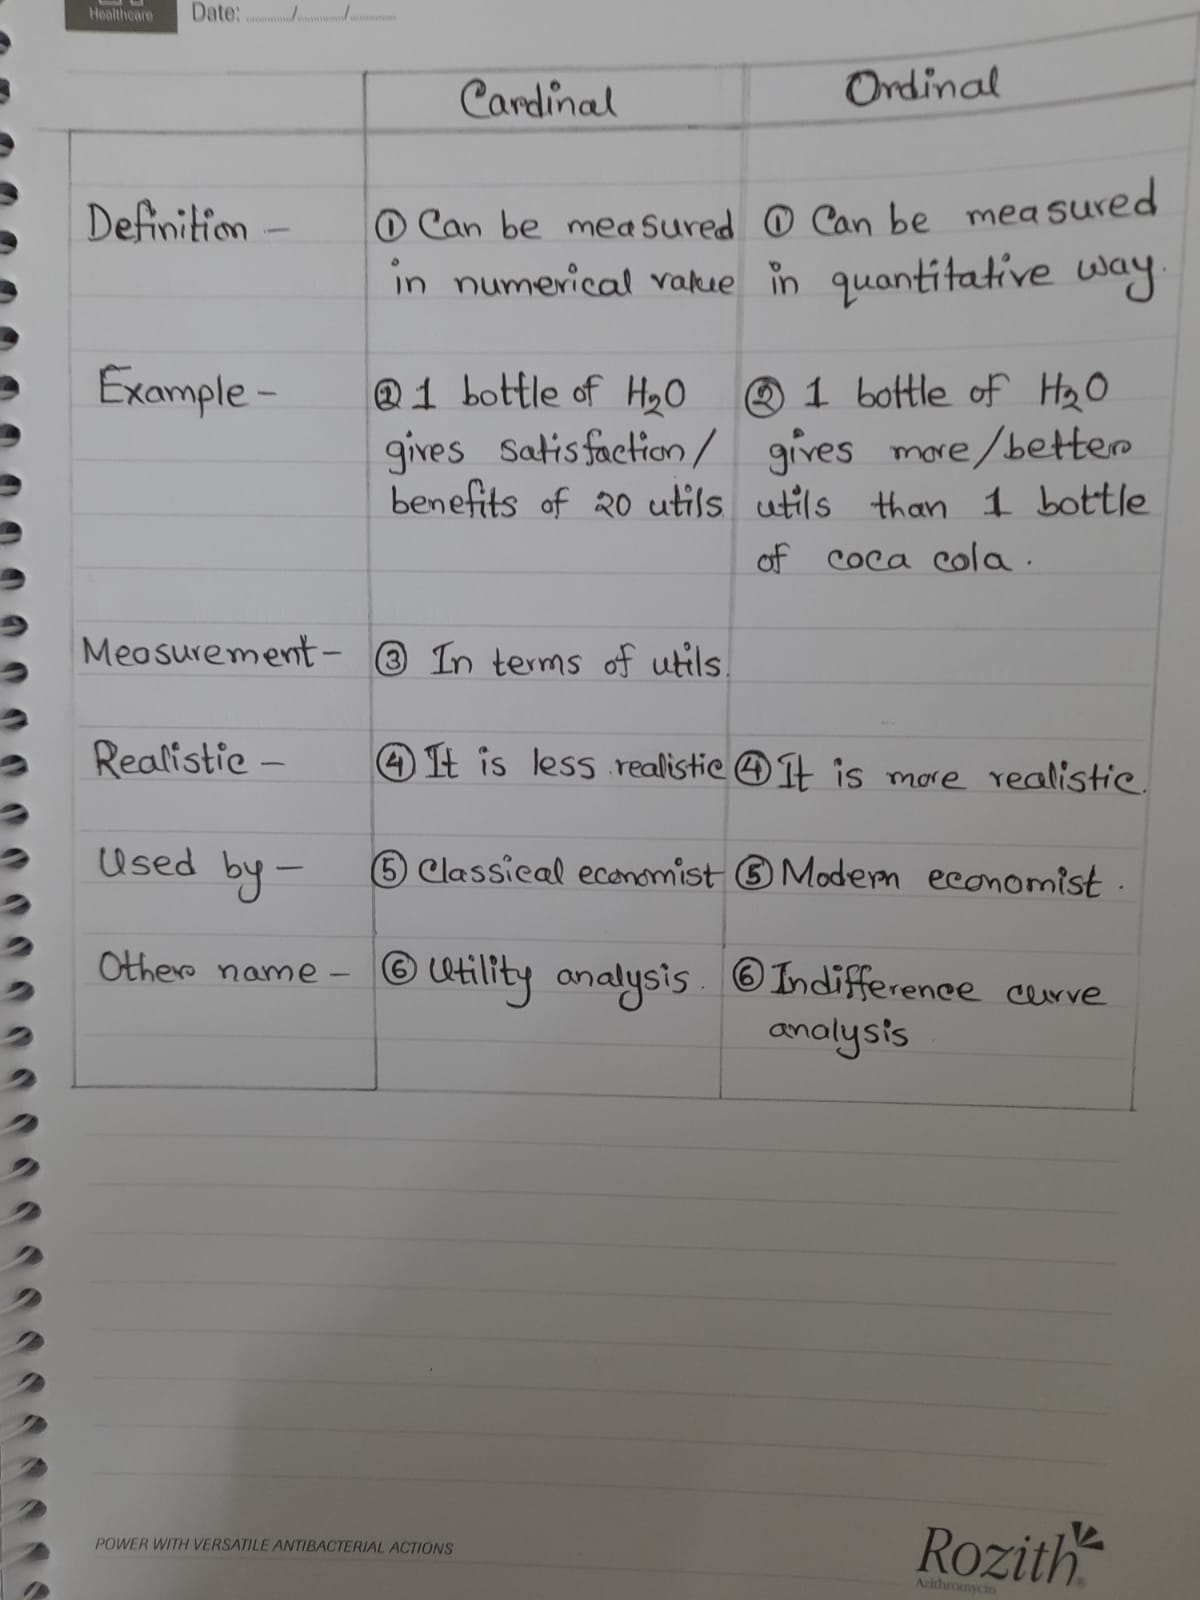 Healthcare
Date: ............/............/............
Cardinal
Ordinal
Definition –
① Can be measured
in numerical value
① Can be measured
in quantitative way.
Example –
② 1 bottle of H₂O
gives satisfaction/
benefits of 20 utils
② 1 bottle of H₂O
gives more/better
utils than 1 bottle
of coca cola.
Measurement –
③ In terms of utils.
Realistic –
④ It is less realistic
④ It is more realistic.
Used by –
⑤ Classical economist
⑤ Modern economist.
Other name –
⑥ Utility analysis.
⑥ Indifference curve
analysis
POWER WITH VERSATILE ANTIBACTERIAL ACTIONS
Rozith®
Azithromycin